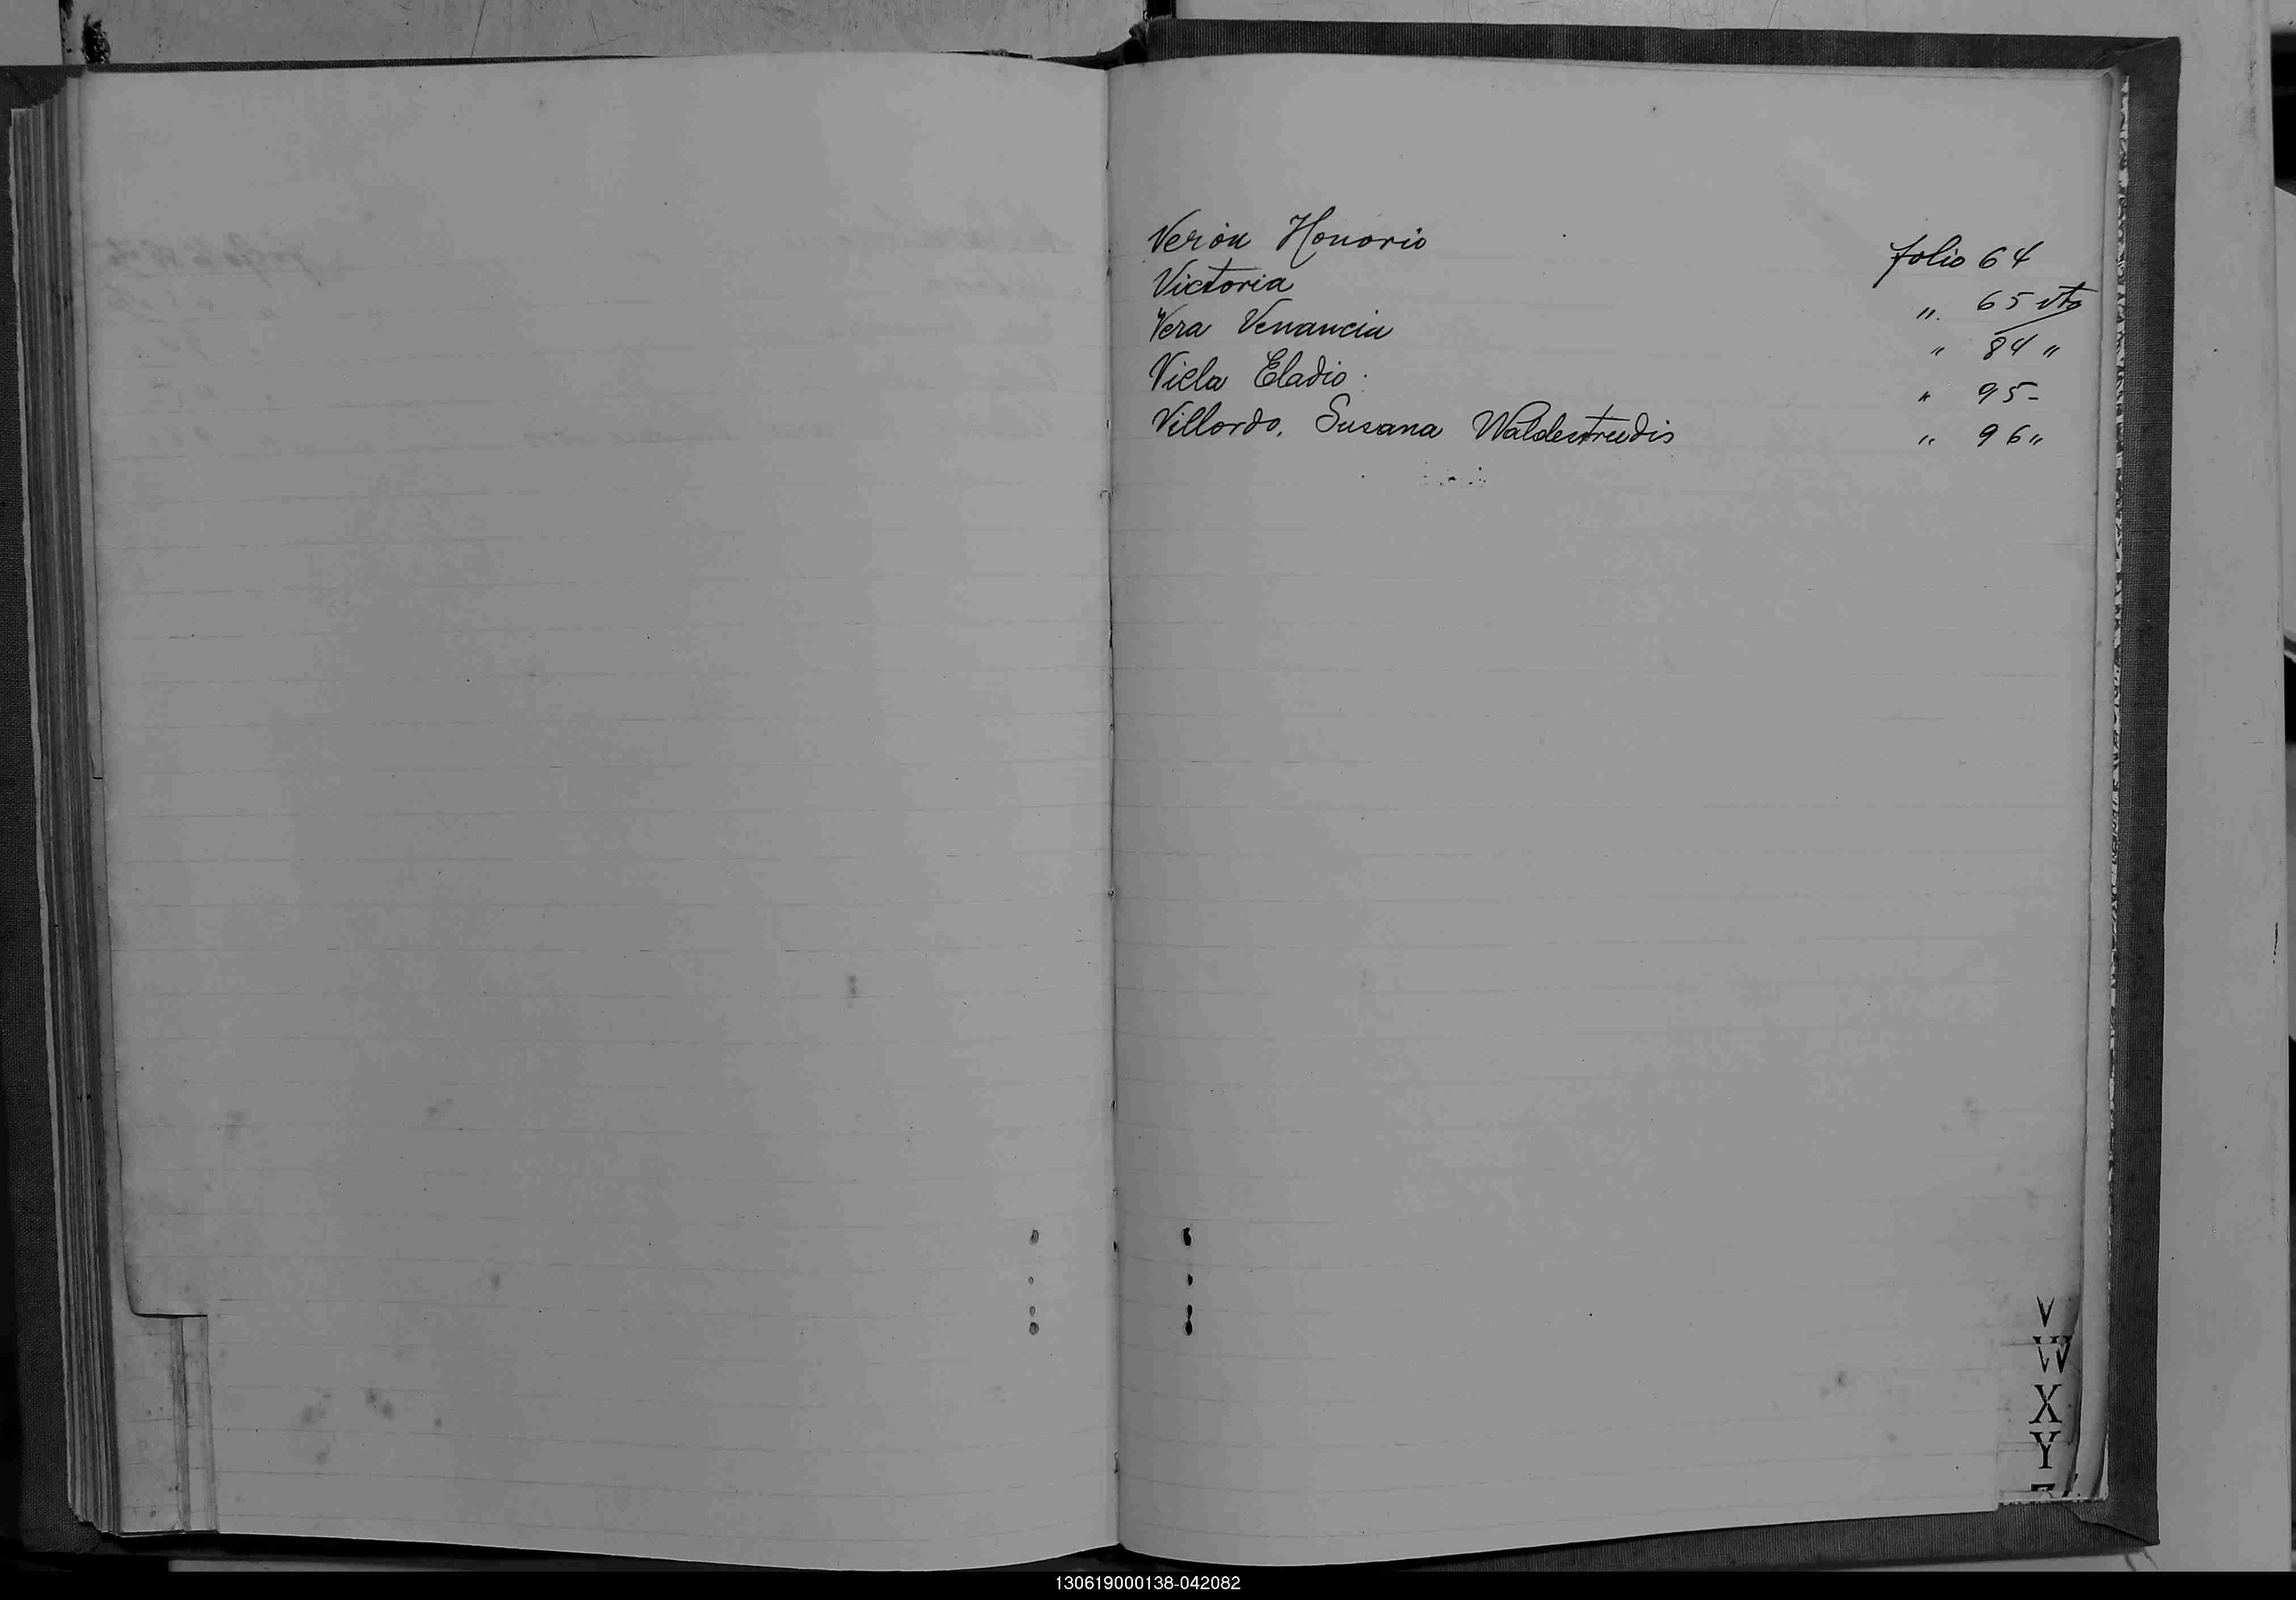 Verón Honorio folio 64
Victoria " 65 vto
Vera Venancia " 84 "
Viela Eladio " 95 -
Villordo, Susana Waldestrudis " 96 "
V
W
X
Y
130619000138-042082